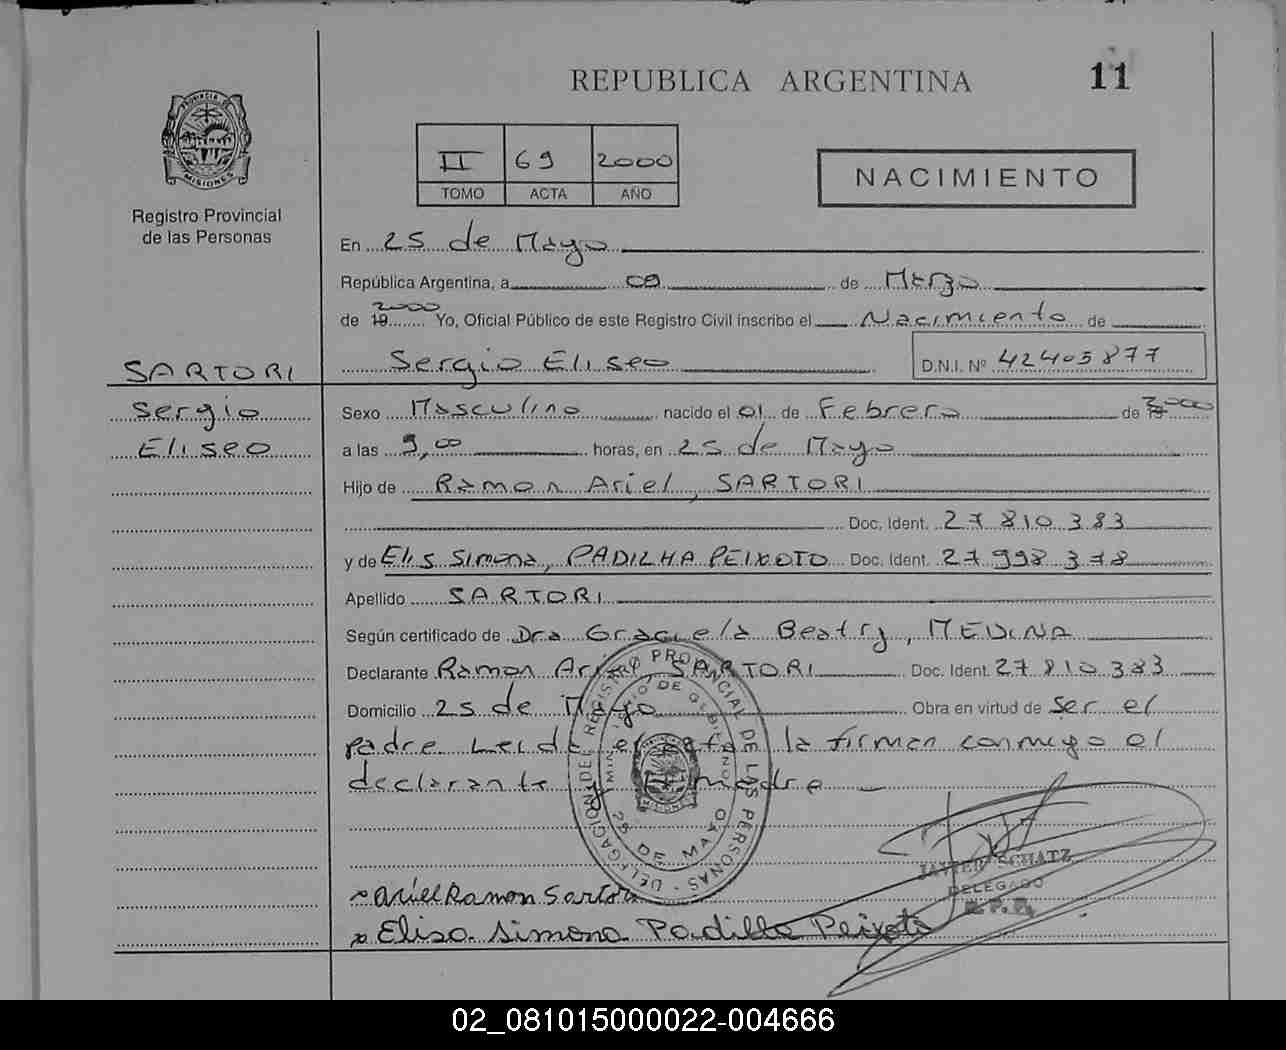 REPUBLICA ARGENTINA
11
PROVINCIA DE
MISIONES
Registro Provincial
de las Personas
II 69 2000
TOMO ACTA AÑO
NACIMIENTO
En 25 de Mayo
República Argentina, a 09 de Marzo
de 19 2000 Yo, Oficial Público de este Registro Civil inscribo el Nacimiento de
Sergio Eliseo D.N.I. Nº 42405877
SARTORI
Sergio
Eliseo
Sexo Masculino nacido el 01 de Febrero de 19 2000
a las 9,00 horas, en 25 de Mayo
Hijo de Ramon Ariel, SARTORI
Doc. Ident. 27 810 383
y de Elis Simona, PADILHA PEIXOTO Doc. Ident. 27 998 378
Apellido SARTORI
Según certificado de Dra Graciela Beatriz, MEDINA
Declarante Ramon Ariel, SARTORI Doc. Ident. 27 810 383
Domicilio 25 de Mayo Obra en virtud de Ser el
padre Leida el acta la firman conmigo el
declarante y la madre
DELEGACION DE REGISTRO PROVINCIAL DE LAS PERSONAS
MINISTERIO DE GOBIERNO
MISIONES
25 DE MAYO
JAVIER SCHATZ
DELEGADO
R.P.P.
Ariel Ramon Sartori
Elisa Simona Padilla Peixoto
02_081015000022-004666